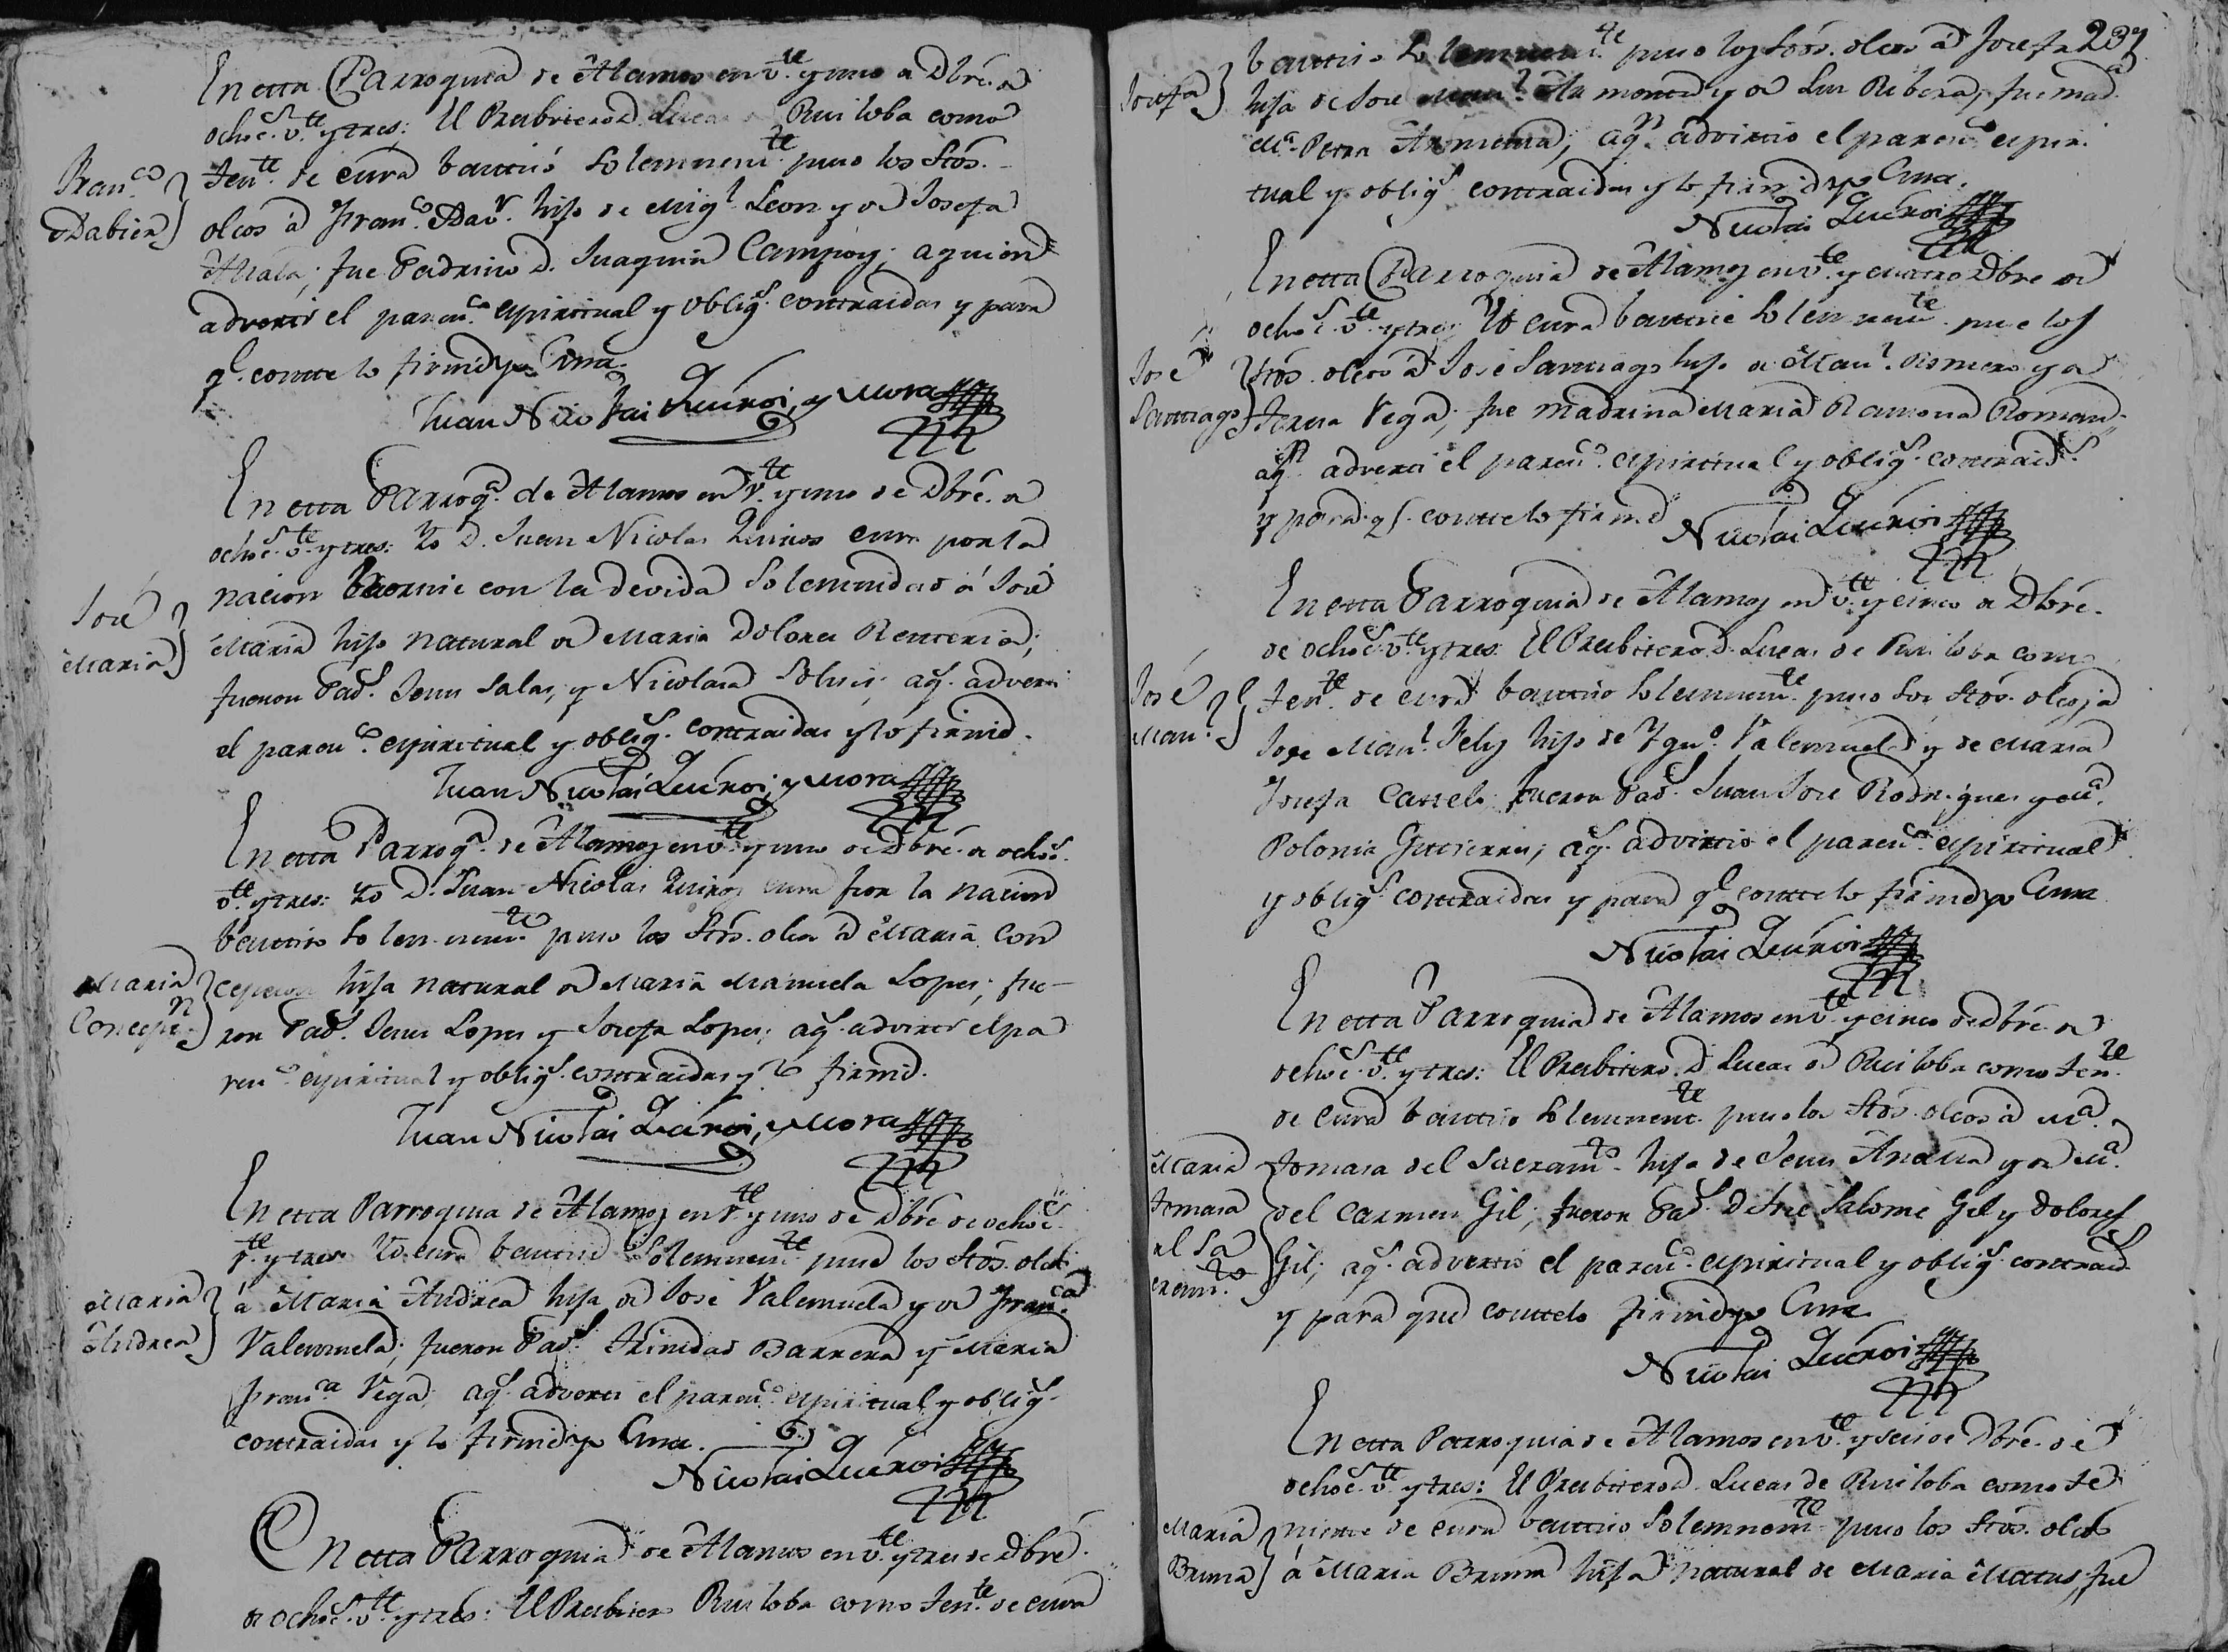 En esta Parroquia de Alamos en v.te y uno de Dbre. de
ochoc.s v.te y tres: El Presbitero D. Lucas de Ruiloba como
Fran.co
Xabier
Ten.te de cura bautisó solemnem.te puso los Stos.
oleos á Fran.co Xav.r hijo de Mig.l Leon y de Josefa
fue Padrino D. Juaquin Campoy; a quien
advertí el paren.co espiritual y oblig.s contraidas y para
q.e conste lo firmé yo Cura.
Juan Nicolas Quiros, y Mora
En esta Parroq.a de Alamos en v.te y uno de Dbre. de
ochoc.s v.te y tres: Yo D. Juan Nicolas Quiros Cura por la
José
Maria
nacion bautisé con la devida solemnidad á José
Maria hijo natural de Maria Dolores Renteria;
fueron Pad.s Jesus Salas, y Nicolasa Solis; aq.s advertí
el paren.co espiritual y oblig.s contraidas y lo firmé.
Juan Nicolas Quiros, y Mora
En esta Parroq.a de Alamos en v.te y uno de Dbre. de ochoc.s
v.te y tres: Yo D. Juan Nicolas Quiros cura por la nacion
bautisé solemnem.te puse los Stos. oleos á Maria Con
Maria
Concepn.
cepcion hija natural de Maria Manuela Lopes; fue-
ron Pad.s Jesus Lopes y Josefa Lopes; aq.s advertí el pa
ren.co espiritual y oblig.s contraidas y lo firmé.
Juan Nicolas Quiros, y Mora
En esta Parroquia de Alamos en v.te y uno de Dbre de ochoc.s
v.te y tres Yo cura bautisé solemnem.te puse los Stos. oleos
Maria
Andrea
á Maria Andrea hija de José Valensuela y de Fran.ca
Valensuela; fueron Pad.s Trinidad Barrera y Maria
Fran.ca Vega; aq.s advertí el paren.co espiritual y oblig.s
contraidas y lo firmé yo Cura.
Nicolas Quiros
En esta Parroquia de Alamos en v.te y tres de Dbre.
de ochoc.s v.te y tres: El Presbitero Ruiloba como Ten.te de cura
237
bautisó solemnem.te puso los Stos. oleos á Josefa
Josefa
hija de José Man.l y de Luz Ribera; fue mad.a
M.a Petra Armenta; aq.n advirtió el paren.co espiri
tual y oblig.s contraidas y lo firmé yo Cura.
Nicolas Quiros
En esta Parroquia de Alamos en v.te y cuatro Dbre de
ochoc.s v.te y tres: Yo cura bautisé solemnem.te puse los
José
Santiago
Stos. oleos á José Santiago hijo de Man.l Romero y de
Teresa Vega; fue madrina Maria Ramona Roman;
aq.n advertí el paren.co espiritual y oblig.s contraid.s
y para q.e conste lo firmé
Nicolas Quiros
En esta Parroquia de Alamos en v.te y cinco de Dbre.
de ochoc.s v.te y tres: El Presbitero D. Lucas de Ruiloba como
José
Man.l
Ten.te de cura bautisó solemnem.te puso los Stos. oleos á
Jose Man.l Felis hijo de Ygn.o Valensuela y de Maria
Josefa Castelo; fueron Pad.s Juan Jose Rodrigues y M.a
Polonia Gutierres; aq.s advirtió el paren.co espiritual
y oblig.s contraidas y para q.e conste lo firmé yo Cura
Nicolas Quiros
En esta Parroquia de Alamos en v.te y cinco de Dbre. de
ochoc.s v.te y tres: El Presbitero D. Lucas de Ruiloba como Ten.te
de cura bautisó solemnem.te puso los Stos. oleos á M.a
Maria
Tomasa
el Sa
cram.to
Tomasa del Sacram.to hija de Jesus y de M.a
del Carmen Gil; fueron Pad.s D. José Salome Gil y Dolores
Gil; aq.s advertió el paren.co espiritual y oblig.s contraid.s
y para que conste lo firmé yo Cura
Nicolas Quiros
En esta Parroquia de Alamos en v.te y seis de Dbre. de
ochoc.s v.te y tres: El Presbitero D. Lucas de Ruiloba como Te
Maria
Bruna
niente de cura bautisó solemnem.te puso los Stos. oleos
á Maria Bruna hija natural de Maria Matus; fue